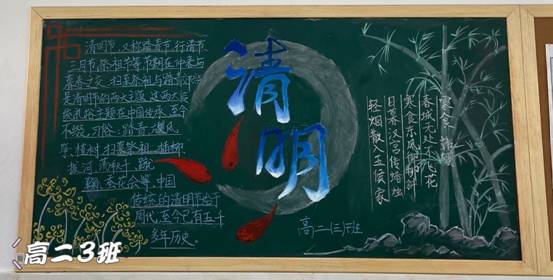 清明节,又称踏青节、行清节、
三月节、祭祖节等,节期在仲春与
暮春之交。扫墓祭祖与踏青郊游
是清明节的两大主题,这两大传
统礼俗主题在中国传承,至今
不辍。习俗:踏青、放风
筝、植树、扫墓祭祖、插柳
拔河、荡秋千、蹴
鞠、
中国
传统的清明节始于
周代,至今已有五十
多年历史。
清明
寒食
春城无处不飞花
寒食东风御柳斜
日暮汉宫传蜡烛
轻烟散入五侯家
高二(三)班
高二3班